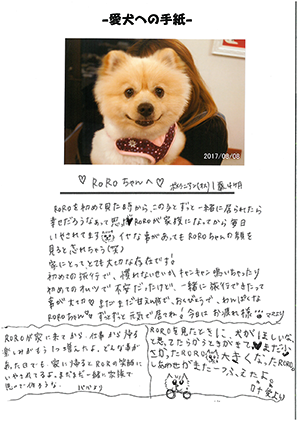 -愛犬への手紙-
2017/08/08
♡ RORO ちゃんへ ♡ ポメラニアン(オス) 1歳4ヶ月
ROROを初めて見た時から、この子とずっと一緒に居られたら
幸せだろうなぁって思い ROROが家族になってから毎日
いやされてます イヤな事があってもROROちゃんの顔を
見ると忘れちゃう(笑)
家にとってとても大切な存在です!
初めての旅行で、慣れないせいか、キャンキャン鳴いちゃったり
初めてのオムツで不安だったけど、一緒に旅行できたって
事が大切 まだまだ甘えん坊で、おくびょうで、わんぱくな
ROROちゃん ずっと元気で居てね! 今日はお疲れ様
ママより
ROROが家に来てから、仕事から帰る
楽しみがもう1つ増えたよ。どんな事が
あった日でも、家に帰るとROROの笑顔に
いやされてるよ。まだまだ一緒に家族で
思い出作ろうな。 パパより
ROROを見たときに、犬がほしいな、
と思ってたらうちときがきて まだ小
さかったRORO 大きくなったRORO。
しあわせがまた一つふえたよ。
より